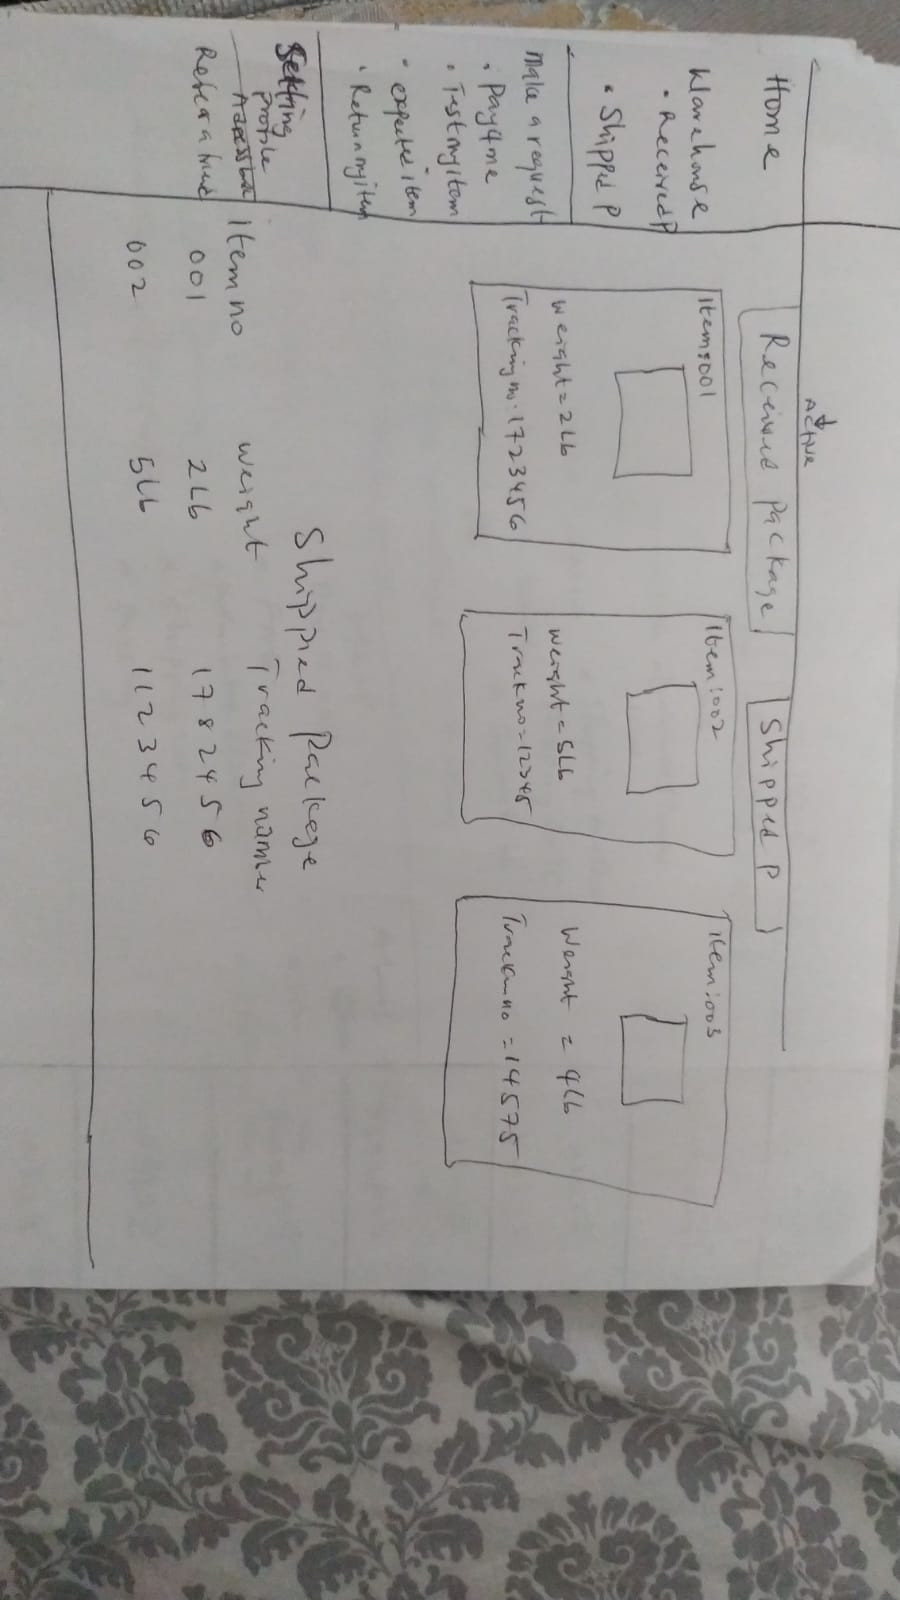 Home
Warehouse
• Received P
• Shipped P
Make a request
• Pay4me
• Test my item
• expected item
• Return my item
Setting
Profile
Refer a friend
Active
Received package
Shipped P
Item:001
Weight = 2Lb
Tracking no. 1723456
Item:002
Weight = 5Lb
Track no = 12345
Item:003
Weight = 4Lb
Track no = 14575
Shipped Package
item no Weight Tracking number
001 2Lb 1782456
002 5Lb 1123456